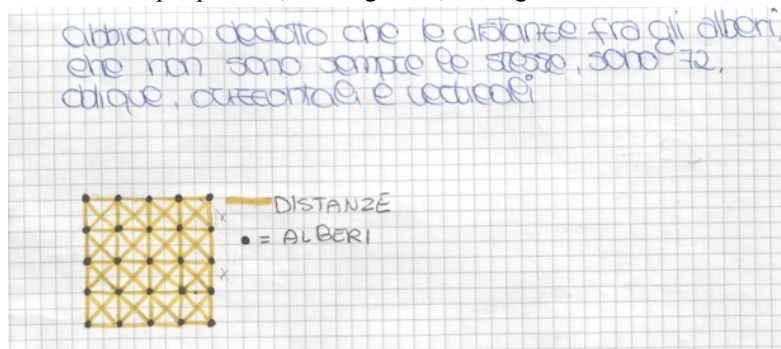 abbiamo dedotto che le distanze fra gli alberi,
che non sono sempre le stesse, sono 72,
oblique, orizzontali e verticali
DISTANZE
• = ALBERI